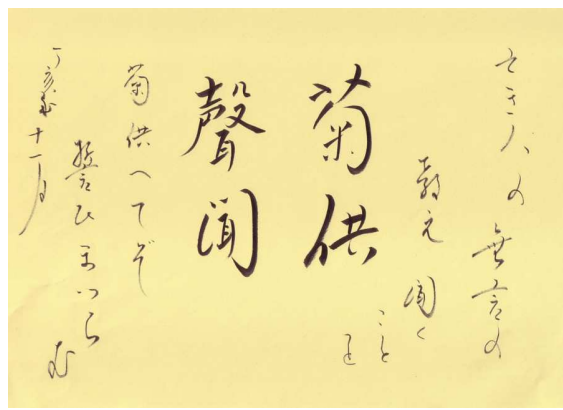 亡き人の無言の
教え聞く
ことを
菊供
聲聞
菊供へてぞ
誓ひまつらむ
丁亥歳十一月